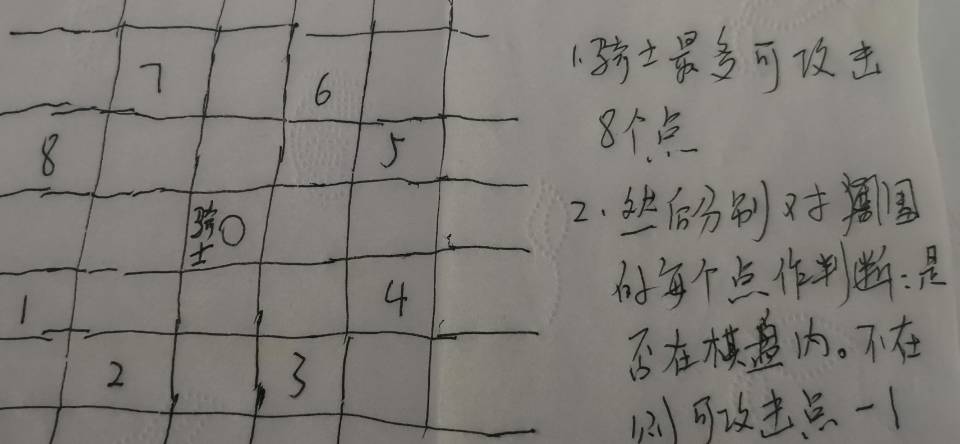 7
6
8
5
骑
士
1
4
2
3
1.骑士最多可攻击
8个点
2.然后分别对周围
的每个点作判断:是
否在棋盘内。不在
则可攻击点-1